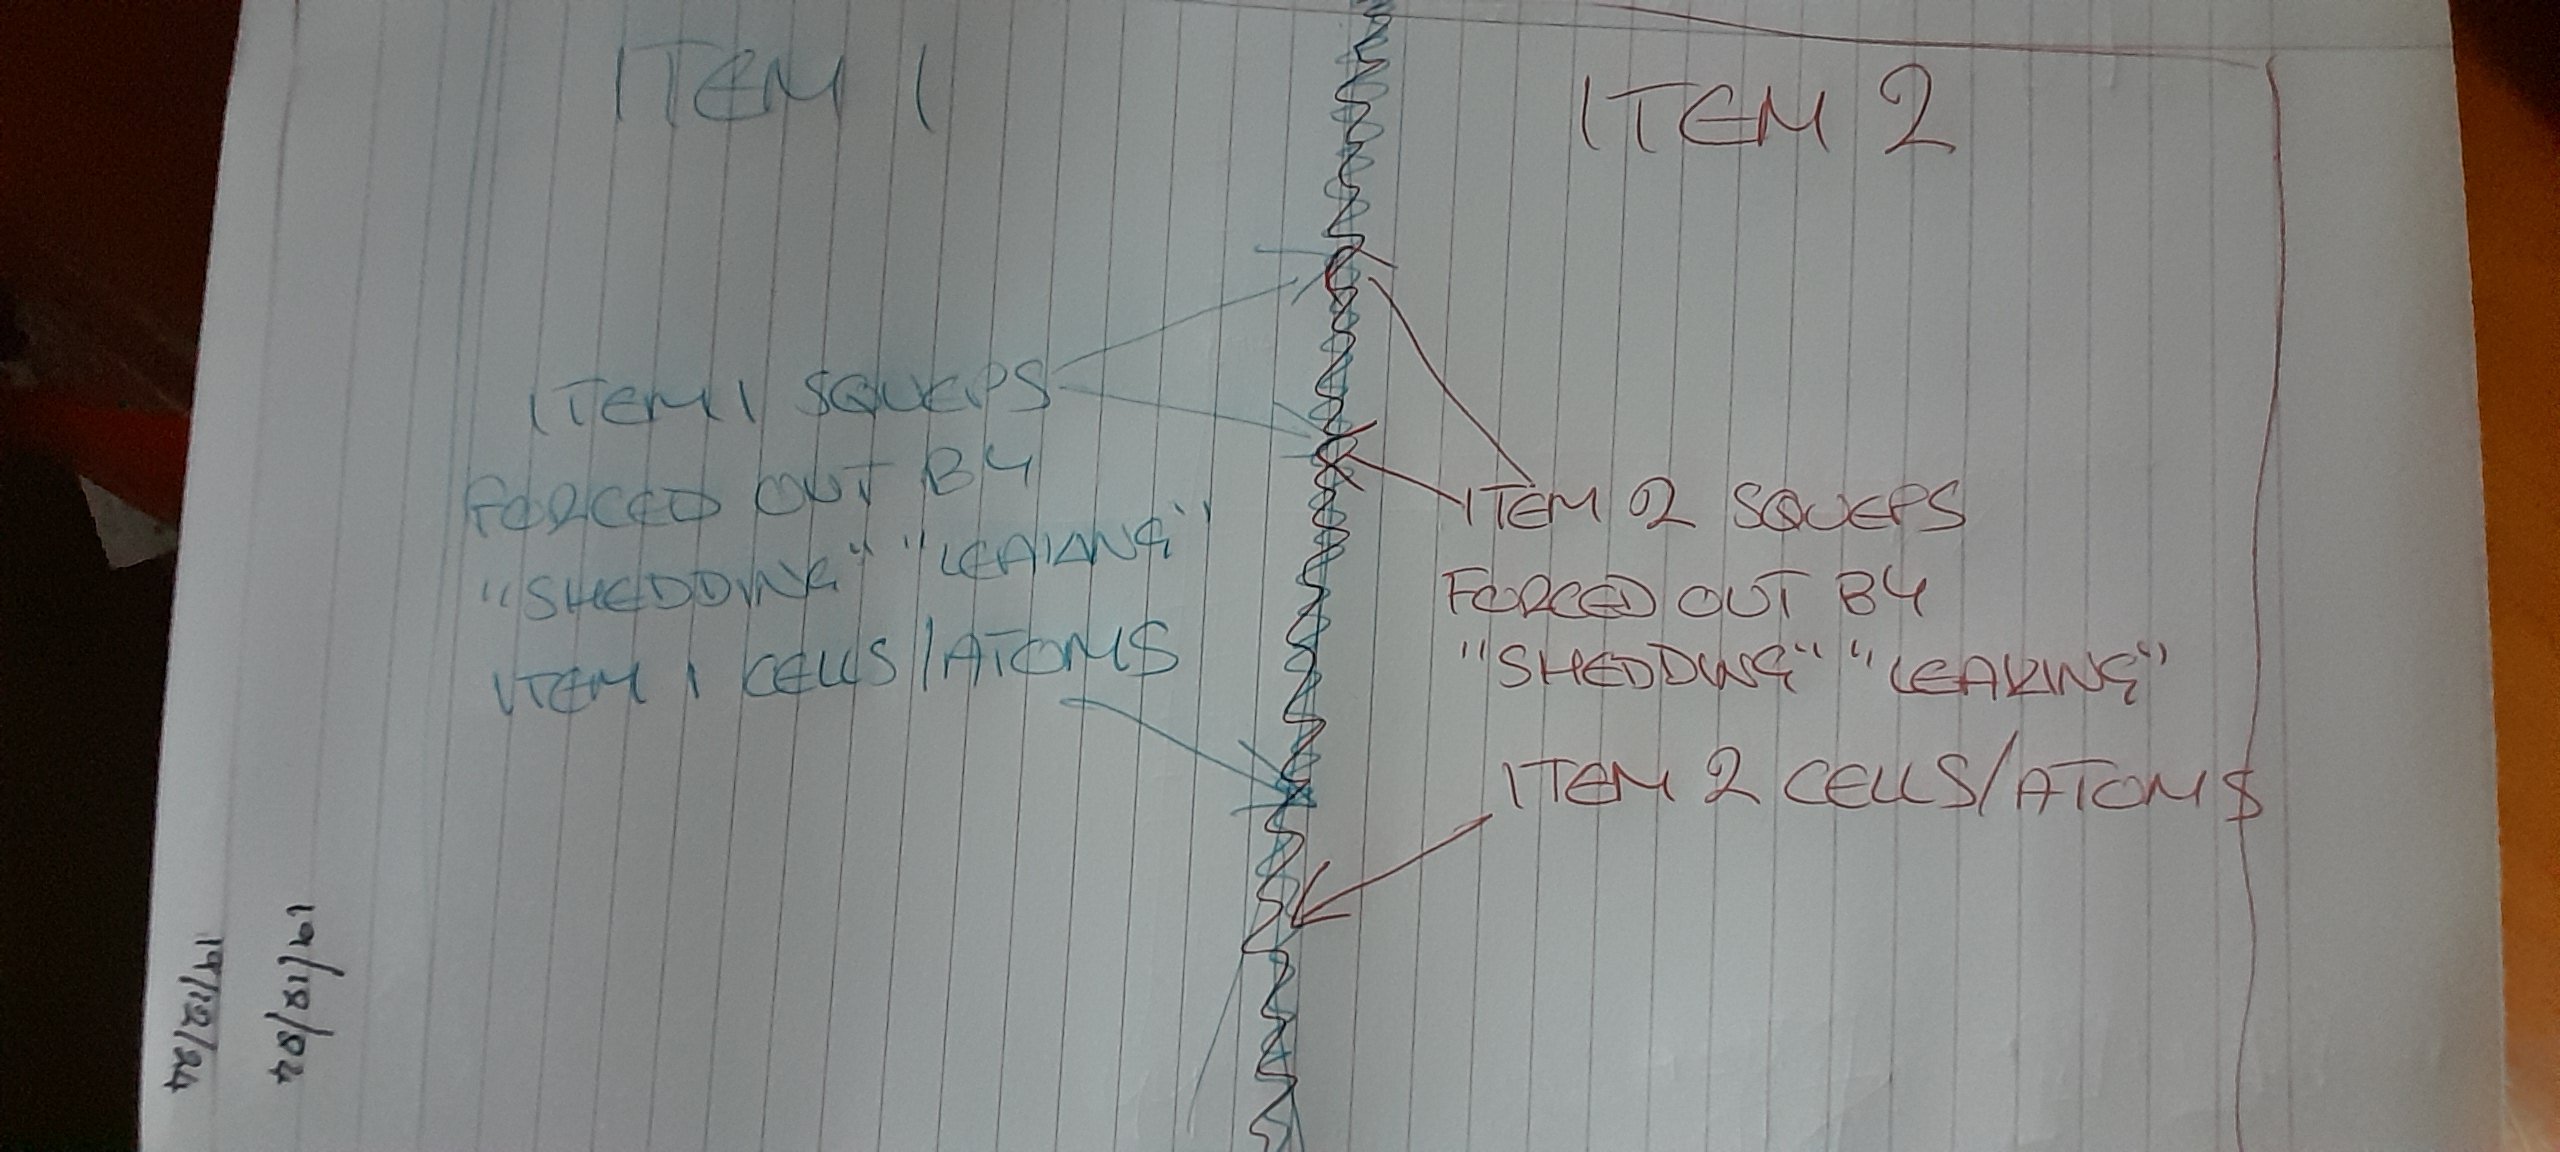 ITEM 1
ITEM 1 SQUEPS
FORCED OUT B4
"SHEDDING" "LEAKING"
ITEM 1 CELLS/ATOMS
ITEM 2
ITEM 2 SQUEPS
FORCED OUT B4
"SHEDDING" "LEAKING"
ITEM 2 CELLS/ATOMS
19/12/24